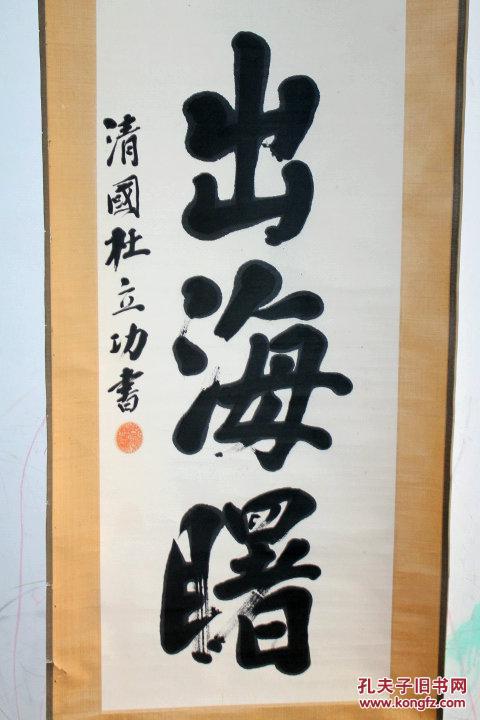 出海曙
清國杜立功書
孔夫子旧书网
www.kongfz.com